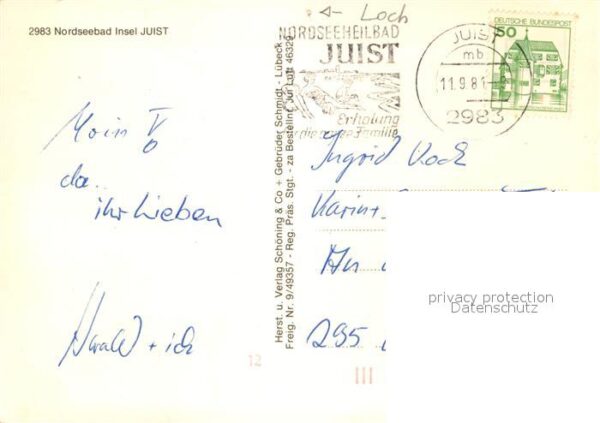 2983 Nordseebad Insel JUIST
Moin
da..
ihr Lieben
+ ich
Herst. u. Verlag Schöning & Co + Gebrüder Schmidt - Lübeck
Freig. Nr. 9/49357 - Reg. Präs. Stgt. - za Bestellnr. Jui Luft 46329
Loch
NORDSEEHEILBAD
JUIST
Erholung
für die ganze Familie
JUIST
mb
11.9.81
2983
DEUTSCHE BUNDESPOST
50
Ingrid Kock
Karin+
An
295
12
III
privacy protection
Datenschutz